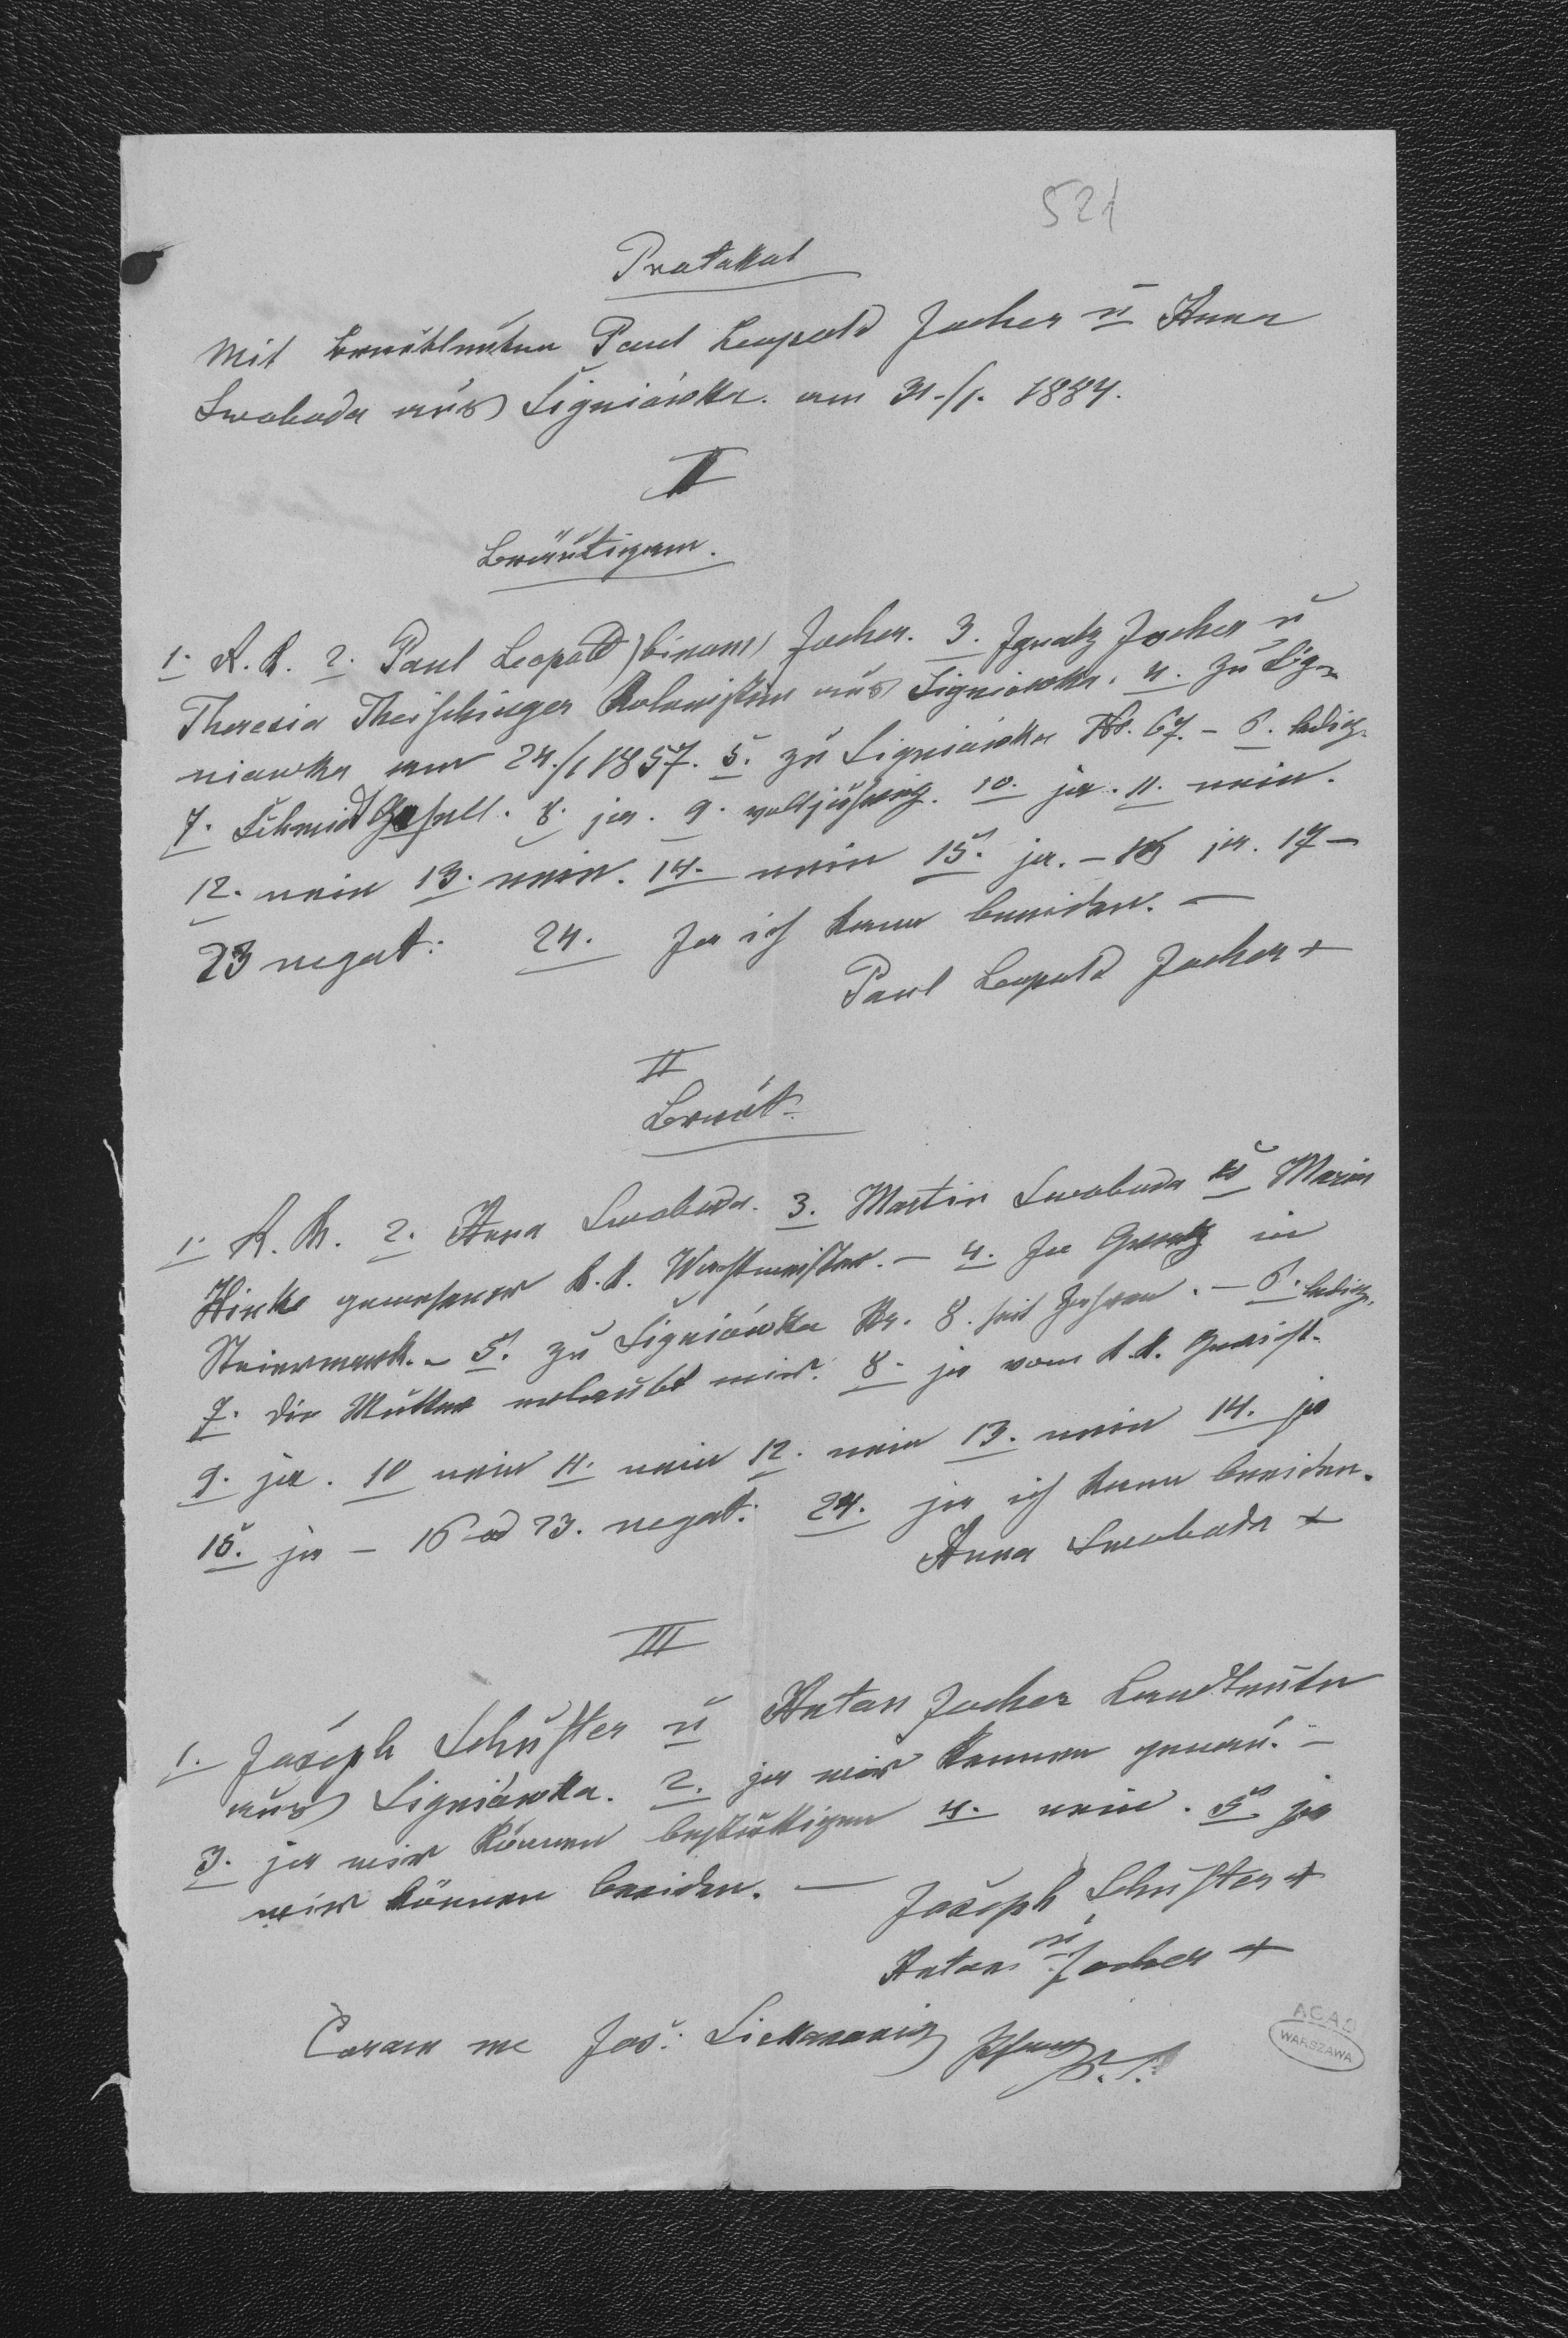 521
Protokol
Mit Brautleuten Paul Leopold Jocher u Anna
Swoboda aus Signiówka. am 31./1. 1884.
I
Bräutigam.
1. R. K. 2. Paul Leopold (binom) Jocher. 3. Ignatz Jocher u
Theresia Theischinger Kolonisten aus Signiowka. 4. zu Sig=
niowka am 24./1 1857. 5. zu Signiówka Nr. 67. – 6. ledig.
7. Schmid Gesell. 8. ja. 9. volljährig. 10. ja. 11. nein.
12. nein 13. nein. 14. nein 15. ja. – 16 ja. 17 –
23 negat: 24. Ja ich kann beeiden. –
Paul Leopold Jocher +
II
Braut.
1. R. K. 2. Anna Swoboda. 3. Martin Swoboda u Maria
gewesener k. k. Wachtmeister. – 4. In Graatz in
Steiermark. – 5. zu Signiówka Nr. 8. seit Jahren. – 6. ledig.
7. die Mutter erlaubt mir. 8. ja vom k.k. Gericht.
9. ja. 10 nein 11. nein 12. nein 13. nein 14. ja
15. ja – 16 ad 23. negat: 24. ja ich kann beeiden.
Anna Swoboda +
III
1. Joseph Schuster u Anton Jocher Landleute
aus Signiówka. 2. ja wir kennen genau. –
3. ja wir können bestättigen 4. nein. 5. ja
wir können beeiden. –
Joseph Schuster +
u
Anton Jocher +
Coram me Jos: Pfarr
AGAD
WARSZAWA